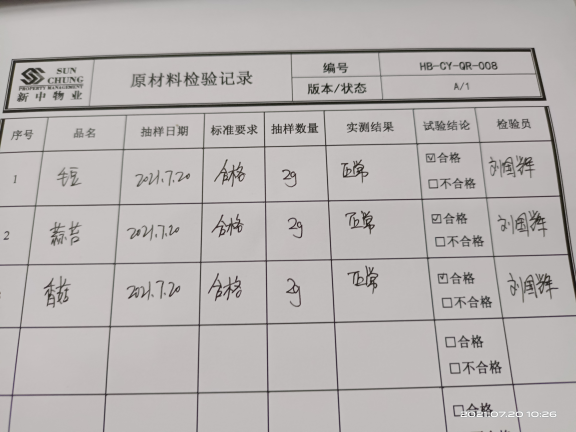 SUN CHUNG
PROPERTY MANAGEMENT
新中物业
原材料检验记录
编号 HB-CY-QR-008
版本/状态 A/1
序号 品名 抽样日期 标准要求 抽样数量 实测结果 试验结论 检验员
1 毛豆 2021.7.20 合格 2g 正常 ☑合格 刘国辉
□不合格
2 蒜苔 2021.7.20 合格 2g 正常 ☑合格 刘国辉
□不合格
香菇 2021.7.20 合格 2g 正常 ☑合格 刘国辉
□不合格
□合格
□不合格
□合格
2021.07.20 10:26